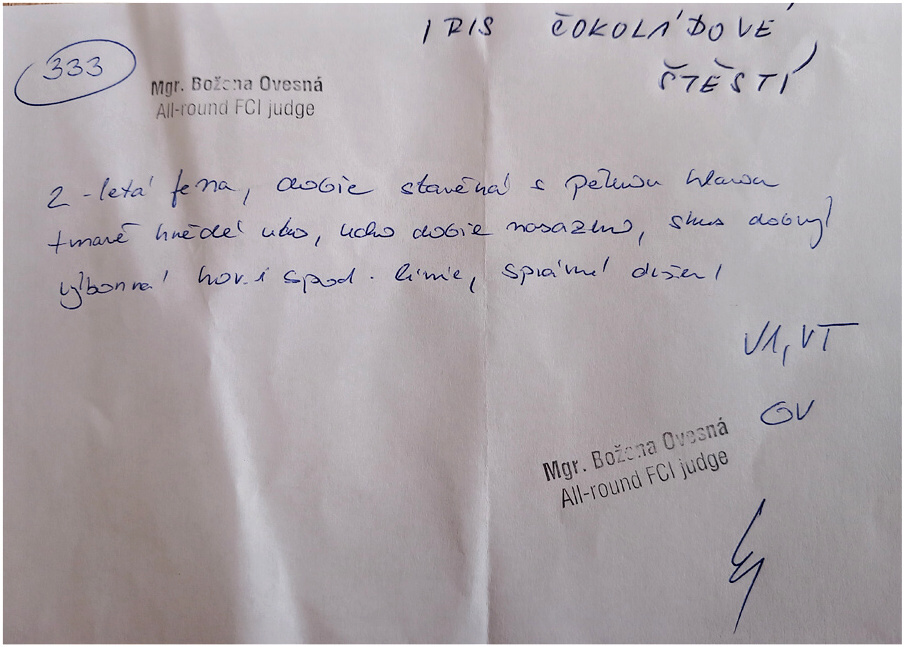 IRIS ČOKOLÁDOVÉ
ŠTĚSTÍ
333
Mgr. Božena Ovesná
All-round FCI judge
2-letá fena, dobře stavěná s pěknou hlavou
tmavě hnědé oko, ucho dobře nasazeno, skus dobrý
výborná hor. i spod. linie, správné držení
V1, VT
OV
Mgr. Božena Ovesná
All-round FCI judge